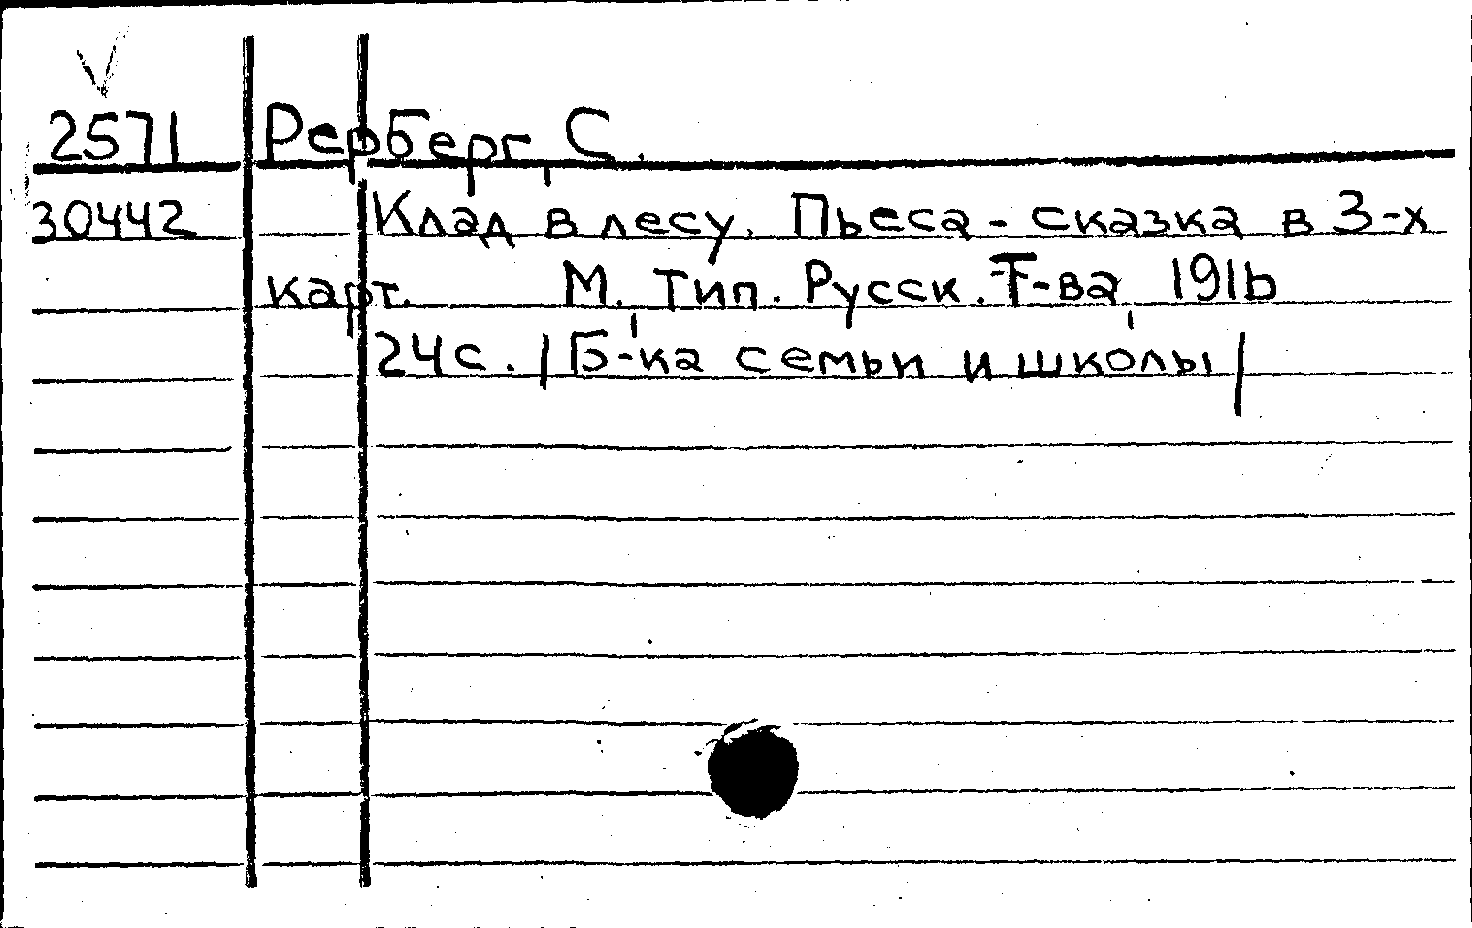 2571 Рерберг, С.
30442 Клад в лесу. Пьеса-сказка в 3-х
карт. М. Тип. Русск. Т-ва, 1916
24с. /Б-ка семьи и школы/